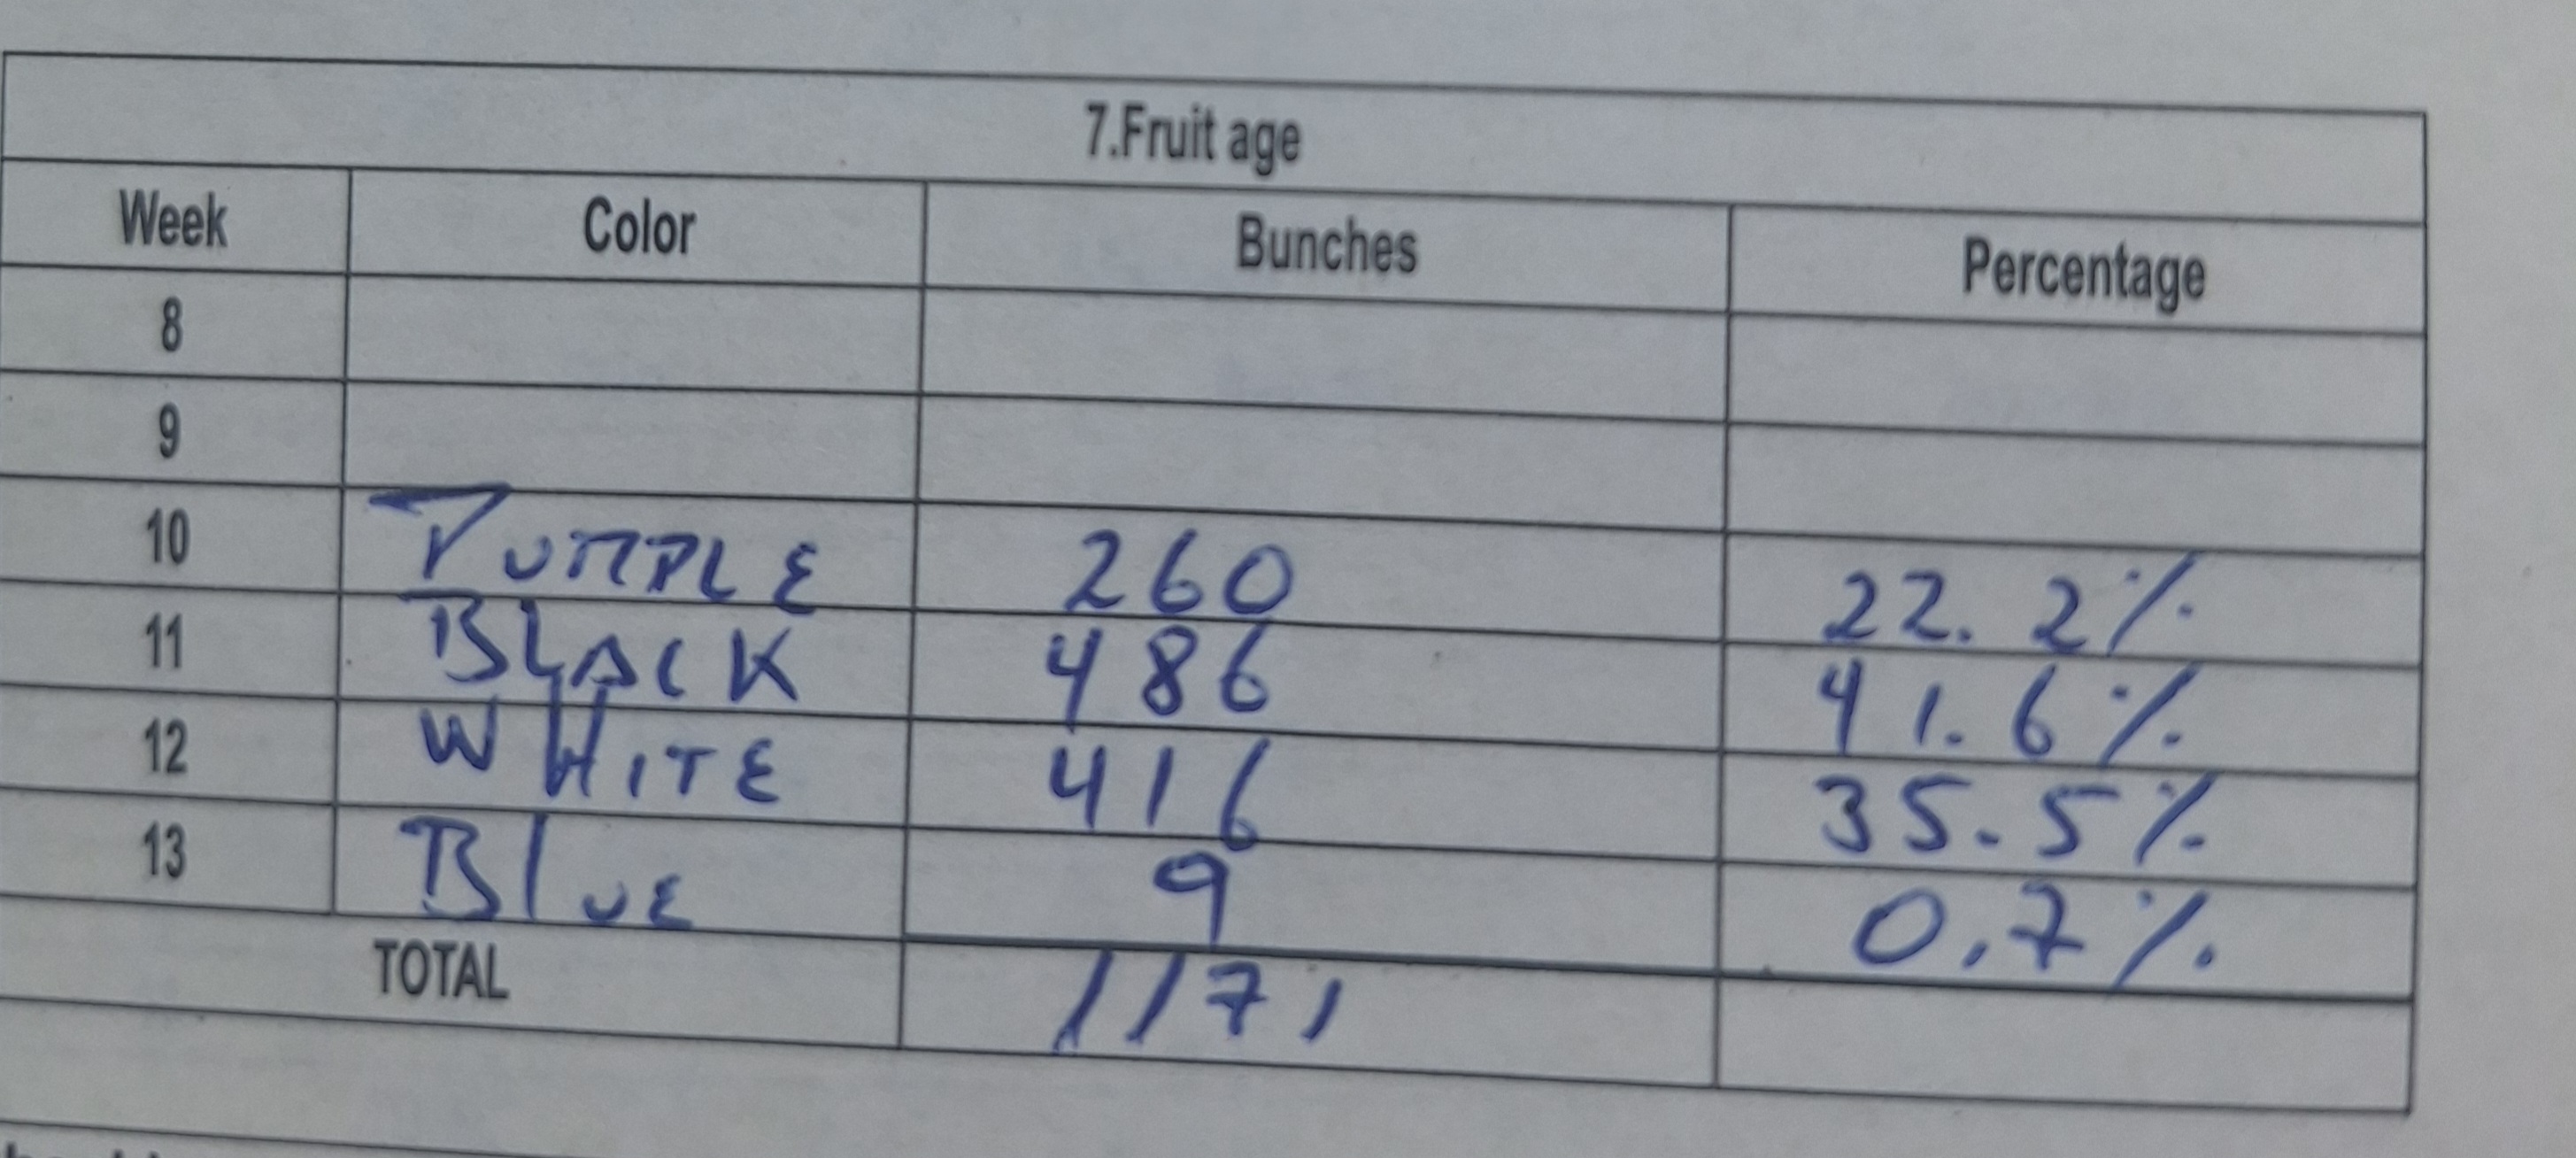 7.Fruit age
Week Color Bunches Percentage
8
9
10 PURPLE 260 22.2%
11 BLACK 486 41.6%
12 WHITE 416 35.5%
13 BluE 9 0.7%
TOTAL 1171